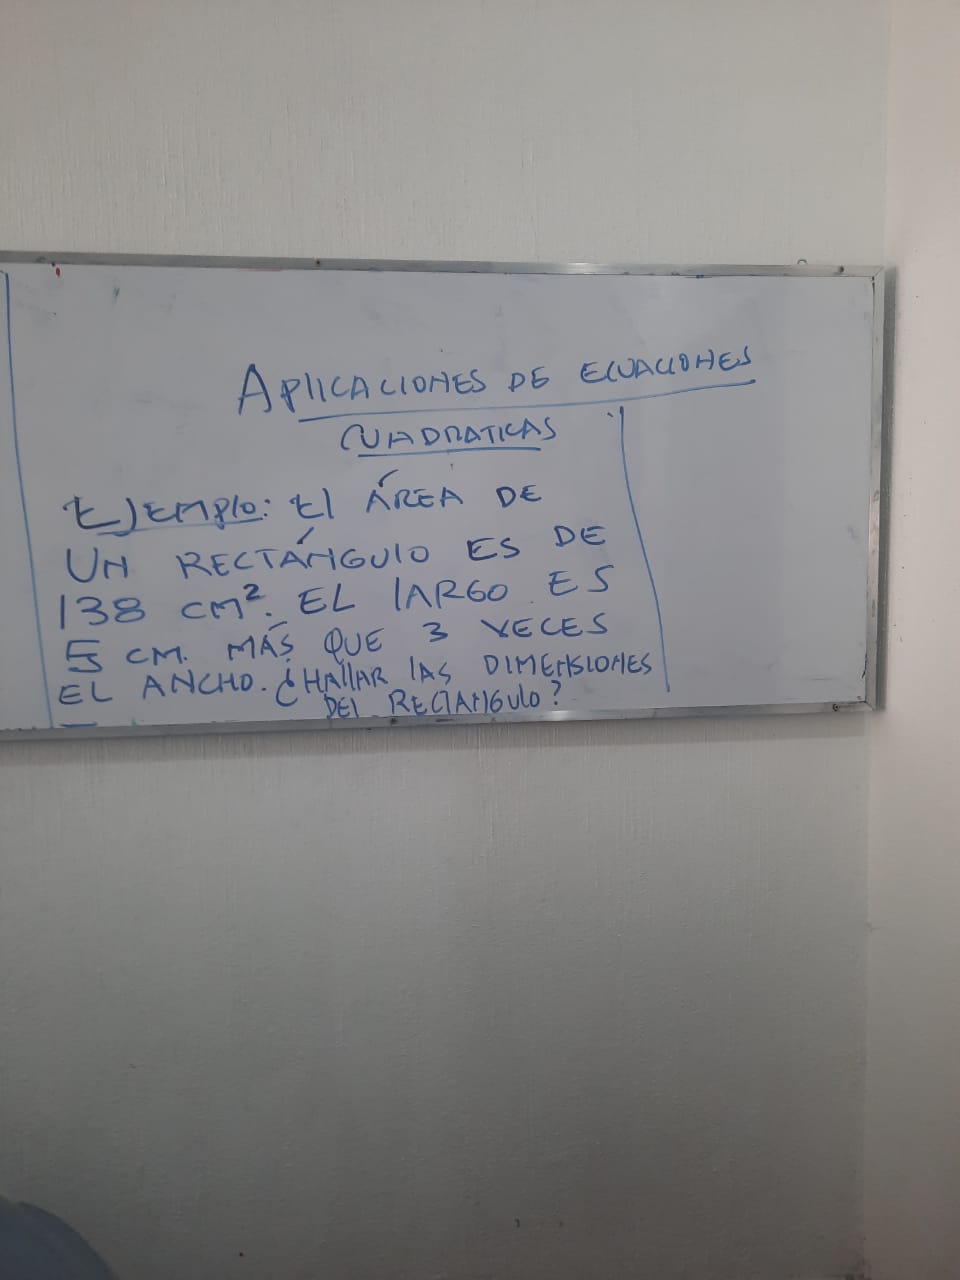 APlICACIONES DE ECUACIONES
CUADRATICAS
EJEMPlO: El ÁREA DE
UN RECTÁNGULO ES DE
138 CM². EL lARGO ES
5 CM. MÁS QUE 3 VECES
EL ANCHO. ¿HAllAR lAS DIMENSIONES
DEl RECTANGUlO?